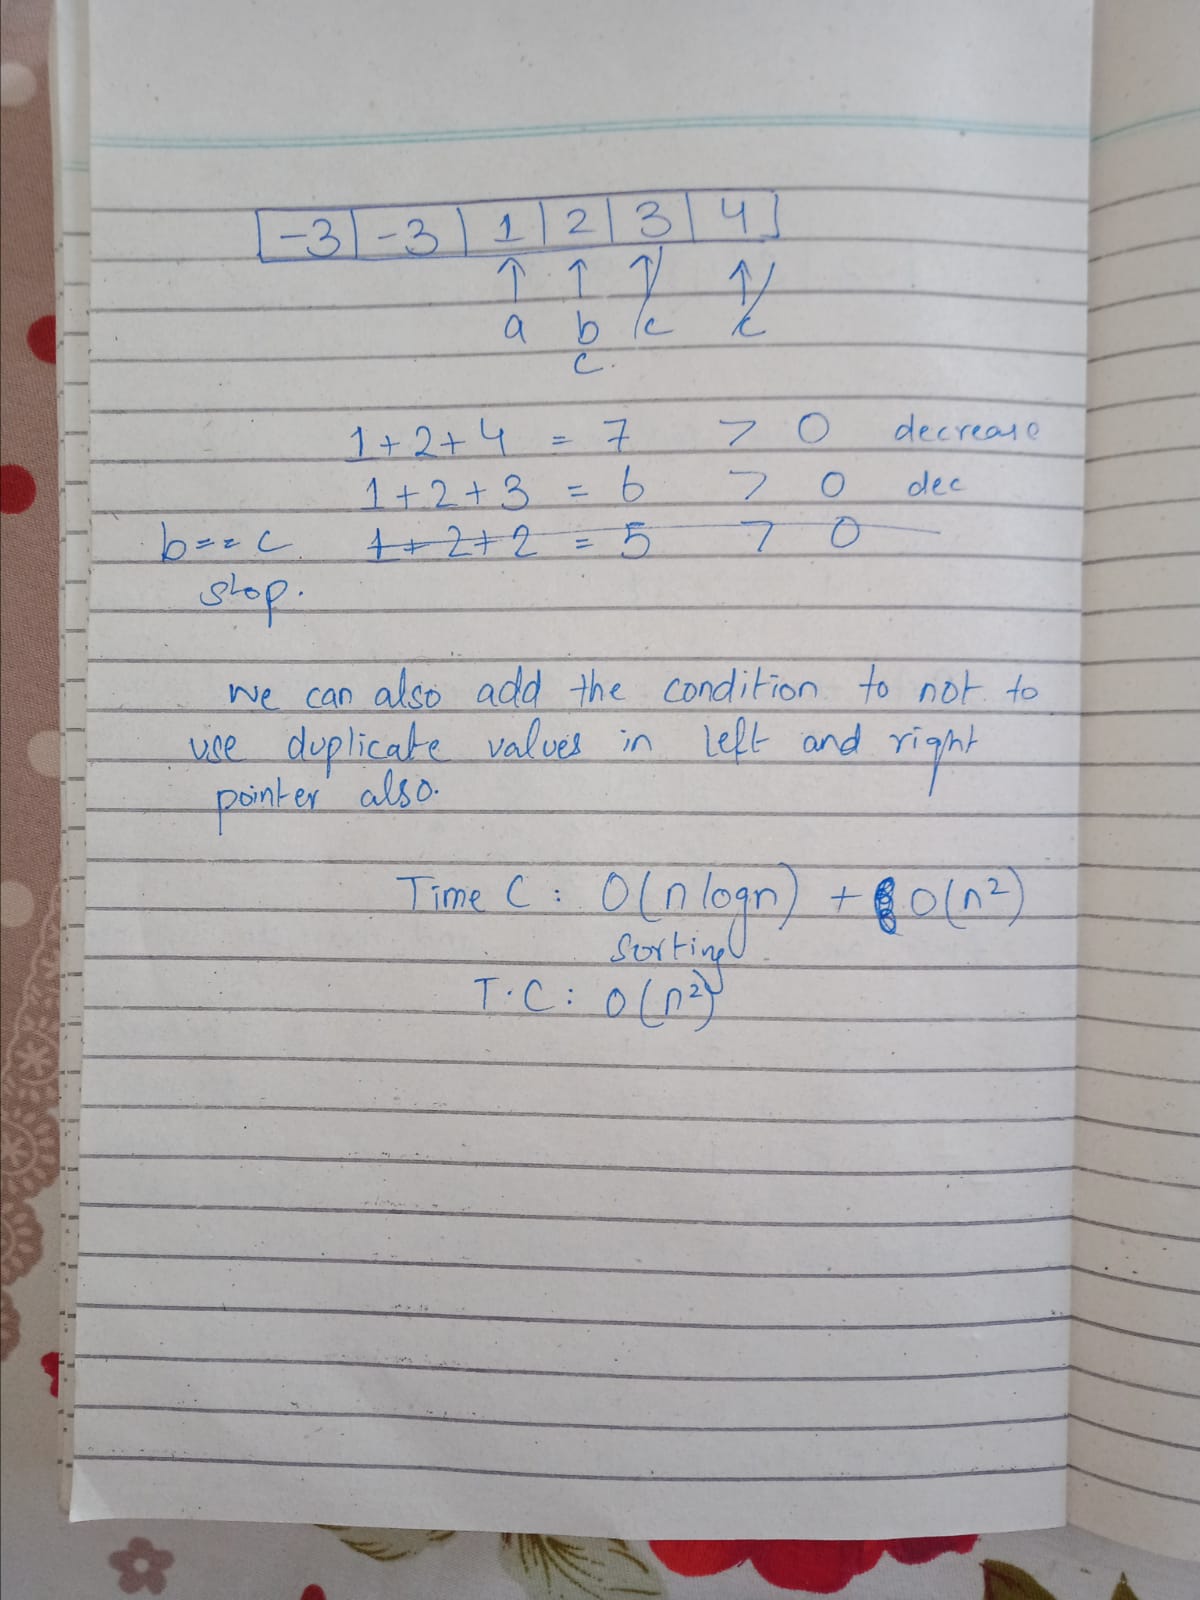 -3 | -3 | 1 | 2 | 3 | 4
↑ ↑ ↑ ↑
a b c c
c
1+2+4 = 7 > 0 decrease
1+2+3 = 6 > 0 dec
b==c 1+2+2 = 5 > 0
stop.
we can also add the condition to not to
use duplicate values in left and right
pointer also.
Time C : O(n logn) + O(n²)
Sorting
T.C : O(n²)